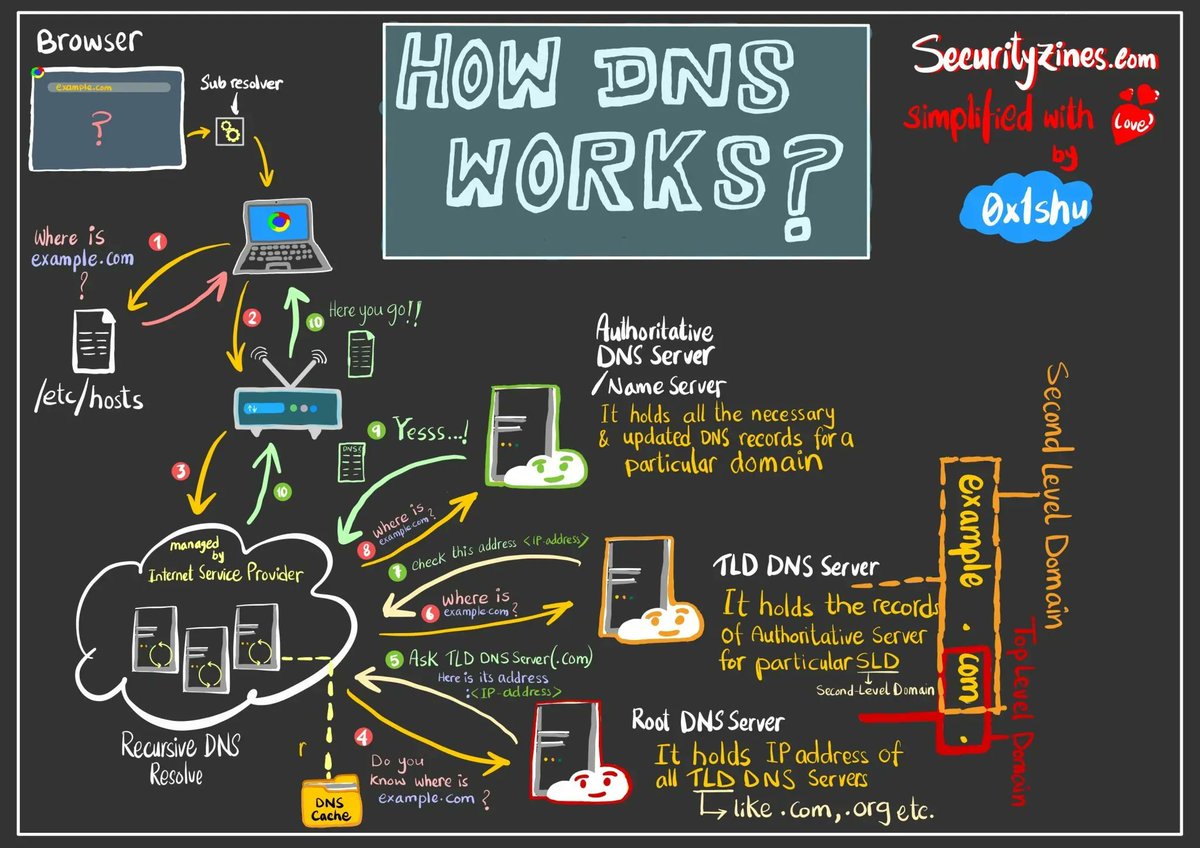 Browser
example.com
?
Sub resolver
HOW DNS
WORKS?
SecurityZines.com
simplified with
Love
by
0x1shu
Where is
example.com
?
1
/etc/hosts
2
10
Here you go!!
3
10
managed
by
Internet Service Provider
Recursive DNS
Resolve
r
DNS
Cache
Authoritative
DNS Server
/Name Server
It holds all the necessary
& updated DNS records for a
particular domain
9 Yesss...!
DNS
8
Where is
example.com?
7 check this address <IP-address>
6
Where is
example.com?
5 Ask TLD DNS Server(.com)
Here is its address
:<IP-address>
4
Do you
know where is
example.com?
TLD DNS Server
It holds the records
of Authoritative Server
for particular SLD
Second-Level Domain
Root DNS Server
It holds IP address of
all TLD DNS Servers
like .com, .org etc.
example.com.
Second Level Domain
Top Level Domain